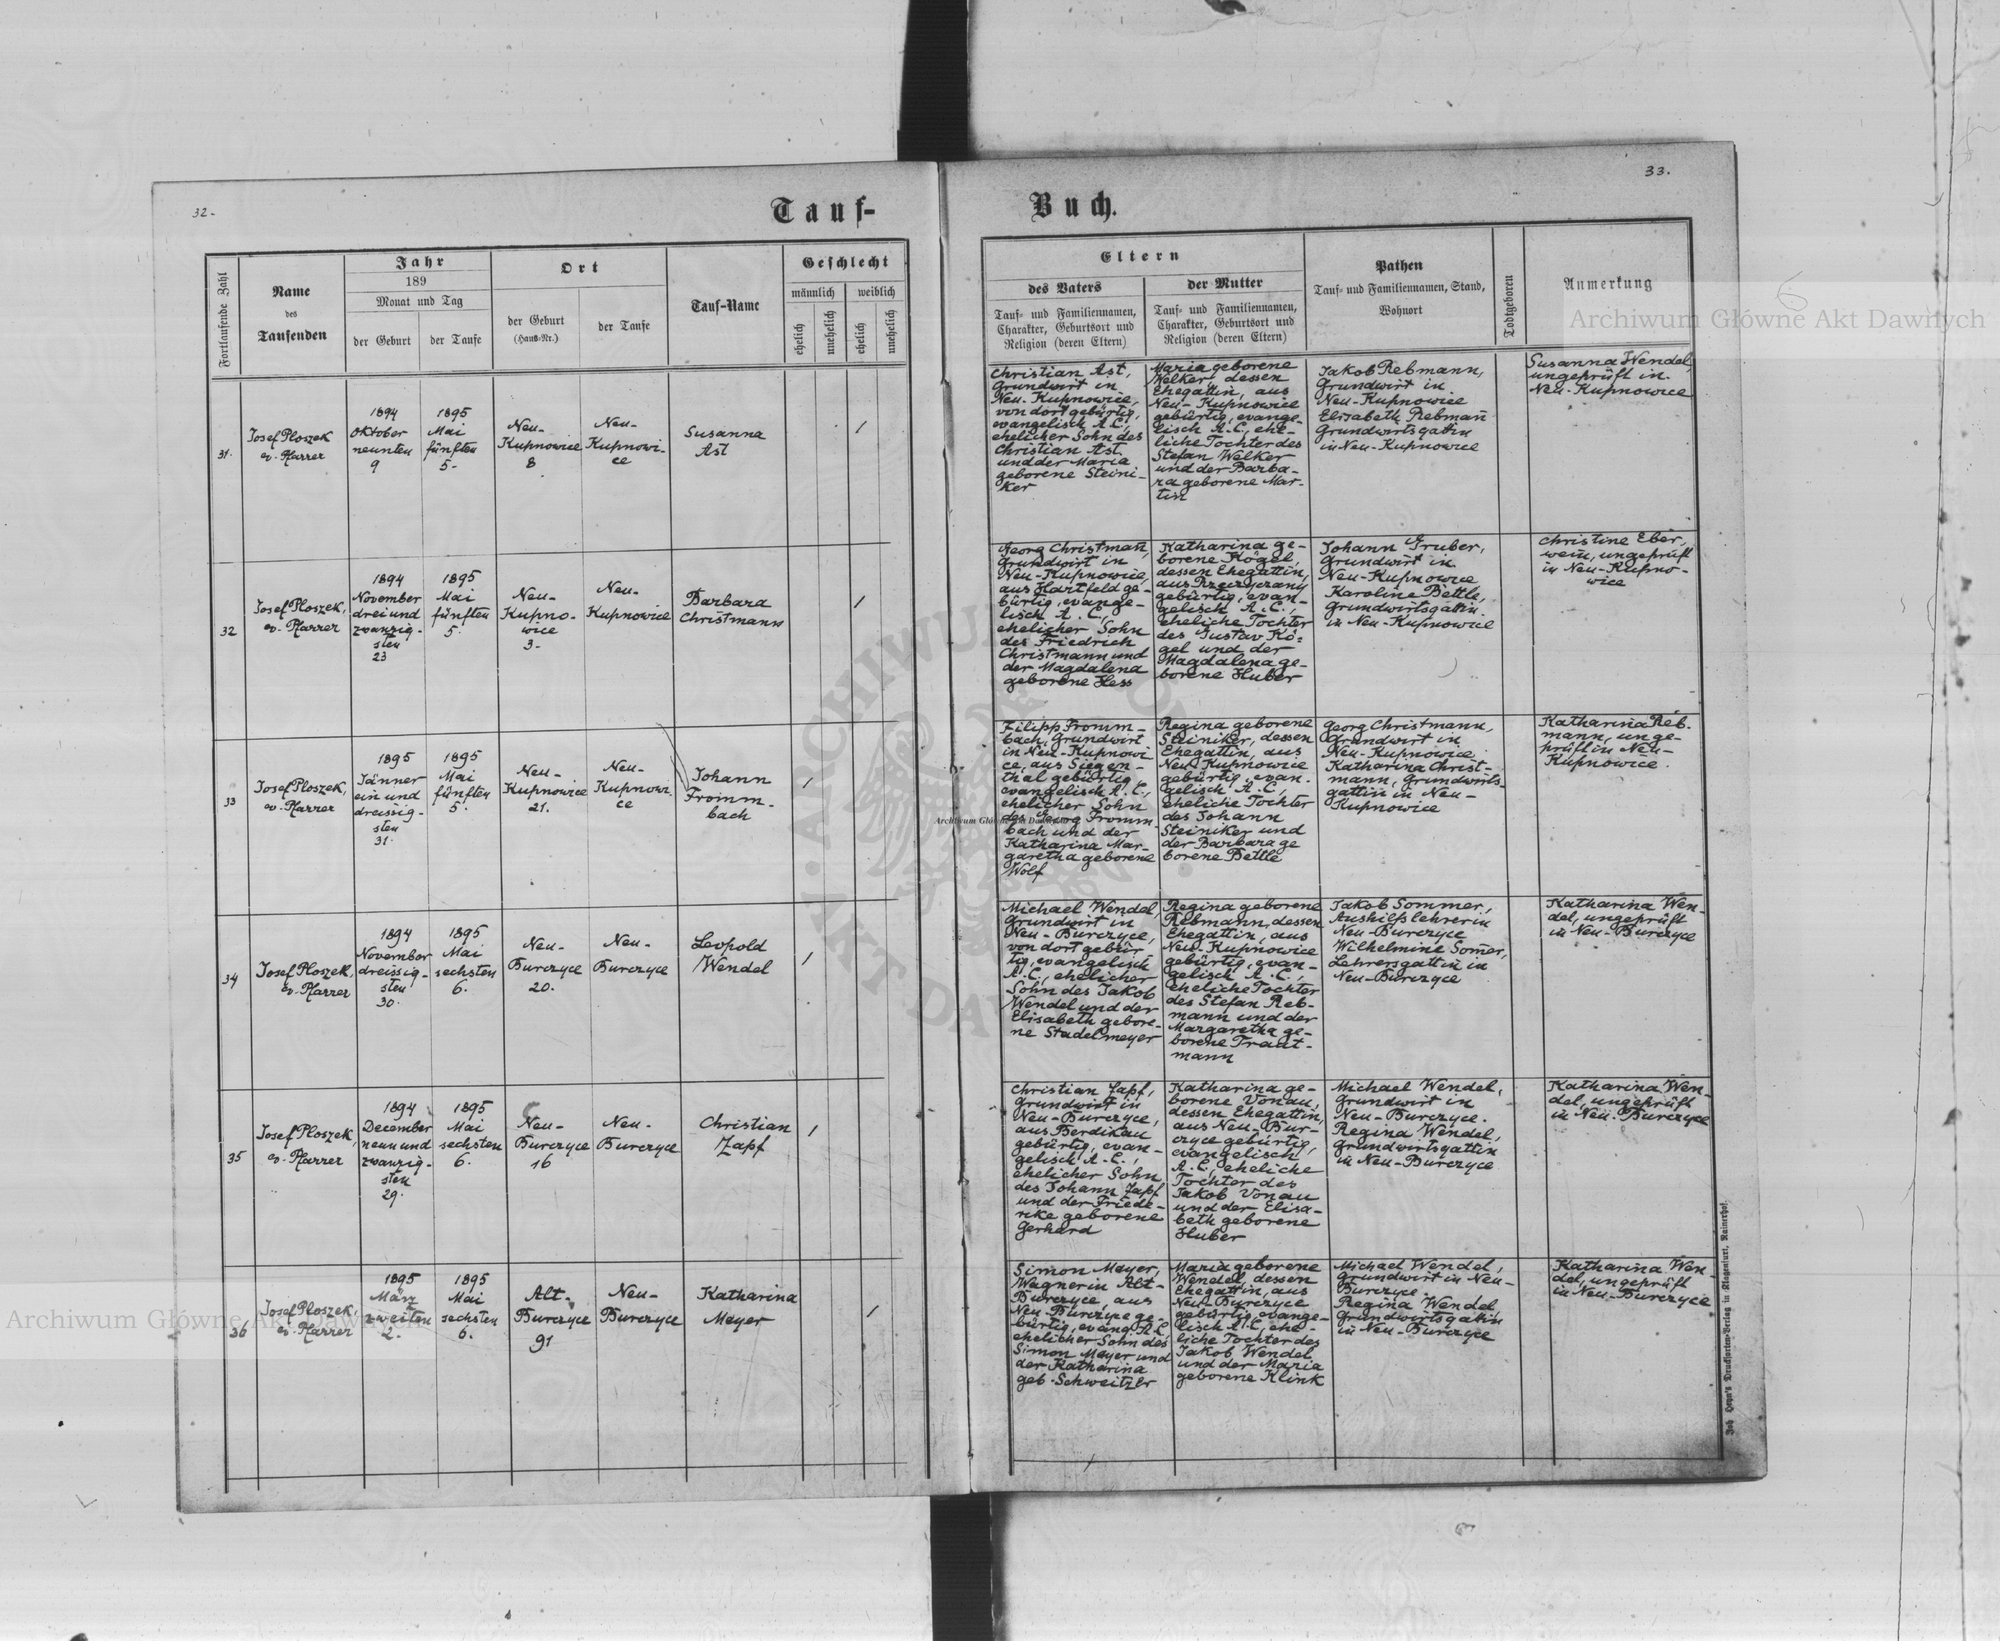 32.
33.
Tauf-
Buch.
Fortlaufende Zahl
Name
des
Taufenden
Jahr
189
Monat und Tag
der Geburt
der Taufe
Ort
der Geburt
(Haus-Nr.)
der Taufe
Tauf-Name
Geschlecht
männlich
weiblich
ehelich
unehelich
ehelich
unehelich
Eltern
des Vaters
Tauf- und Familiennamen,
Charakter, Geburtsort und
Religion (deren Eltern)
der Mutter
Tauf- und Familiennamen,
Charakter, Geburtsort und
Religion (deren Eltern)
Pathen
Tauf- und Familiennamen, Stand,
Wohnort
Todtgeboren
Anmerkung
6
Archiwum Główne Akt Dawnych
31.
Josef Ploszek
ev. Pfarrer
1894
Oktober
neunten
9
1895
Mai
fünften
5.
Neu-
Kupnowice
8
Neu-
Kupnowi-
ce
Susanna
Ast
1
Christian Ast,
Grundwirt in
Neu-Kupnowice,
von dort gebürtig,
evangelisch A.C.,
ehelicher Sohn des
Christian Ast
und der Maria
geborene Steini-
ker
Maria geborene
Welker, dessen
Ehegattin, aus
Neu-Kupnowice
gebürtig, evange-
lisch A.C., ehe-
liche Tochter des
Stefan Welker
und der Barba-
ra geborene Mar-
tin
Jakob Rebmann,
Grundwirt in
Neu-Kupnowice
Elisabeth Rebmañ
Grundwirtsgattin
in Neu-Kupnowice
Susanna Wendel,
ungeprüft in
Neu-Kupnowice
32
Josef Ploszek,
ev. Pfarrer
1894
November
drei und
zwanzig-
sten
23
1895
Mai
fünften
5.
Neu-
Kupno-
wice
3.
Neu-
Kupnowice
Barbara
Christmann
1
Georg Christmañ,
Grundwirt in
Neu-Kupnowice,
aus Hartfeld ge-
bürtig, evange-
lisch A.C.,
ehelicher Sohn
des Friedrich
Christmann und
der Magdalena
geborene Hess
Katharina ge-
borene Kögel,
dessen Ehegattin,
aus Rzeczyczany
gebürtig, evan-
gelisch A.C.,
eheliche Tochter
des Gustav Kö-
gel und der
Magdalena ge-
borene Huber
Johann Gruber,
Grundwirt in
Neu-Kupnowice
Karoline Bettle,
Grundwirtsgattin
in Neu-Kupnowice
Christine Eber,
wein, ungeprüft
in Neu-Kupno-
wice
33
Josef Ploszek,
ev. Pfarrer
1895
Jänner
ein und
dreissig-
sten
31.
1895
Mai
fünften
5.
Neu-
Kupnowice
21.
Neu-
Kupnowi-
ce
Johann
Fromm-
bach
1
Filipp Fromm-
bach, Grundwirt
in Neu-Kupnowi-
ce, aus Siegen-
thal gebürtig,
evangelisch A.C.,
ehelicher Sohn
des Georg Fromm-
bach und der
Katharina Mar-
garetha geborene
Wolf
Regina geborene
Steiniker, dessen
Ehegattin, aus
Neu-Kupnowice
gebürtig, evan-
gelisch A.C.,
eheliche Tochter
des Johann
Steiniker und
der Barbara ge
borene Bettle
Georg Christmann,
Grundwirt in
Neu-Kupnowice
Katharina Christ-
mann, Grundwirts-
gattin in Neu-
Kupnowice
Katharina Reb-
mann, unge-
prüft in Neu-
Kupnowice.
Archiwum Główne Akt Dawnych
34
Josef Ploszek,
ev. Pfarrer
1894
November
dreissig-
sten
30.
1895
Mai
sechsten
6.
Neu-
Burczyce
20.
Neu-
Burczyce
Leopold
Wendel
1
Michael Wendel,
Grundwirt in
Neu-Burczyce,
von dort gebür
tig, evangelisch
A.C., ehelicher
Sohn des Jakob
Wendel und der
Elisabeth gebore-
ne Stadelmeyer
Regina geborene
Rebmann, dessen
Ehegattin, aus
Neu-Kupnowice
gebürtig, evan-
gelisch A.C.,
eheliche Tochter
des Stefan Reb-
mann und der
Margaretha ge-
borene Traut-
mann
Jakob Sommer,
Aushilfslehrer in
Neu-Burczyce
Wilhelmine Som̃er,
Lehrersgattin in
Neu-Burczyce
Katharina Wen-
del, ungeprüft
in Neu-Burczyce
35
Josef Ploszek,
ev. Pfarrer
1894
December
neun und
zwanzig-
sten
29.
1895
Mai
sechsten
6.
Neu-
Burczyce
16
Neu-
Burczyce
Christian
Zapf
1
Christian Zapf,
Grundwirt in
Neu-Burczyce,
aus Berdikau
gebürtig, evan-
gelisch A.C.,
ehelicher Sohn
des Johann Zapf
und der Friede-
rike geborene
Gerhard
Katharina ge-
borene Vonau,
dessen Ehegattin,
aus Neu-Bur-
czyce gebürtig,
evangelisch
A.C., eheliche
Tochter des
Jakob Vonau
und der Elisa-
beth geborene
Huber
Michael Wendel,
Grundwirt in
Neu-Burczyce.
Regina Wendel,
Grundwirtsgattin
in Neu-Burczyce
Katharina Wen-
del, ungeprüft
in Neu-Burczyce
36
Josef Ploszek,
ev. Pfarrer
1895
März
zweiten
2.
1895
Mai
sechsten
6.
Alt-
Burczyce
91
Neu-
Burczyce
Katharina
Meyer
1
Simon Meyer,
Wagner in Alt-
Burczyce, aus
Neu-Burczyce ge-
bürtig, evang. A.C.,
ehelicher Sohn des
Simon Meyer und
der Katharina
geb. Schweitzer
Maria geborene
Wendel, dessen
Ehegattin, aus
Neu-Burczyce
gebürtig, evange-
lisch A.C., ehe-
liche Tochter des
Jakob Wendel
und der Maria
geborene Klink
Michael Wendel,
Grundwirt in Neu-
Burczyce.
Regina Wendel,
Grundwirtsgattin
in Neu-Burczyce
Katharina Wen-
del, ungeprüft
in Neu-Burczyce
Archiwum Główne Akt Dawnych
Joh. Heyn's Drucksorten-Verlag in Klagenfurt, Rainerhof.